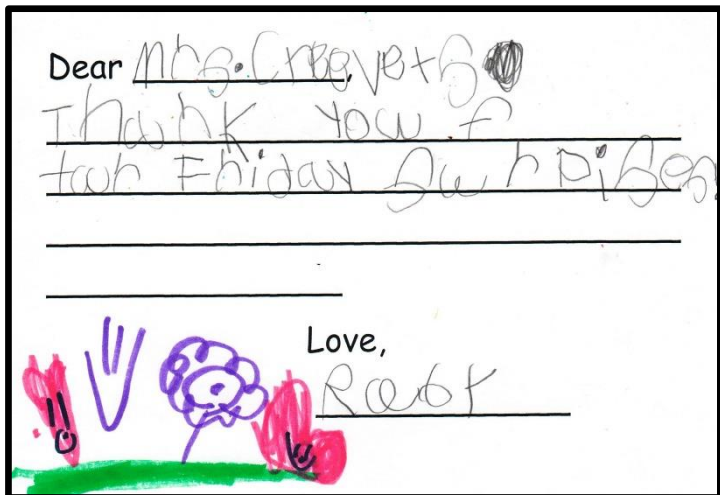 Dear Mrs. Creavets
Thank You f
tour Friday Surpises
Love,